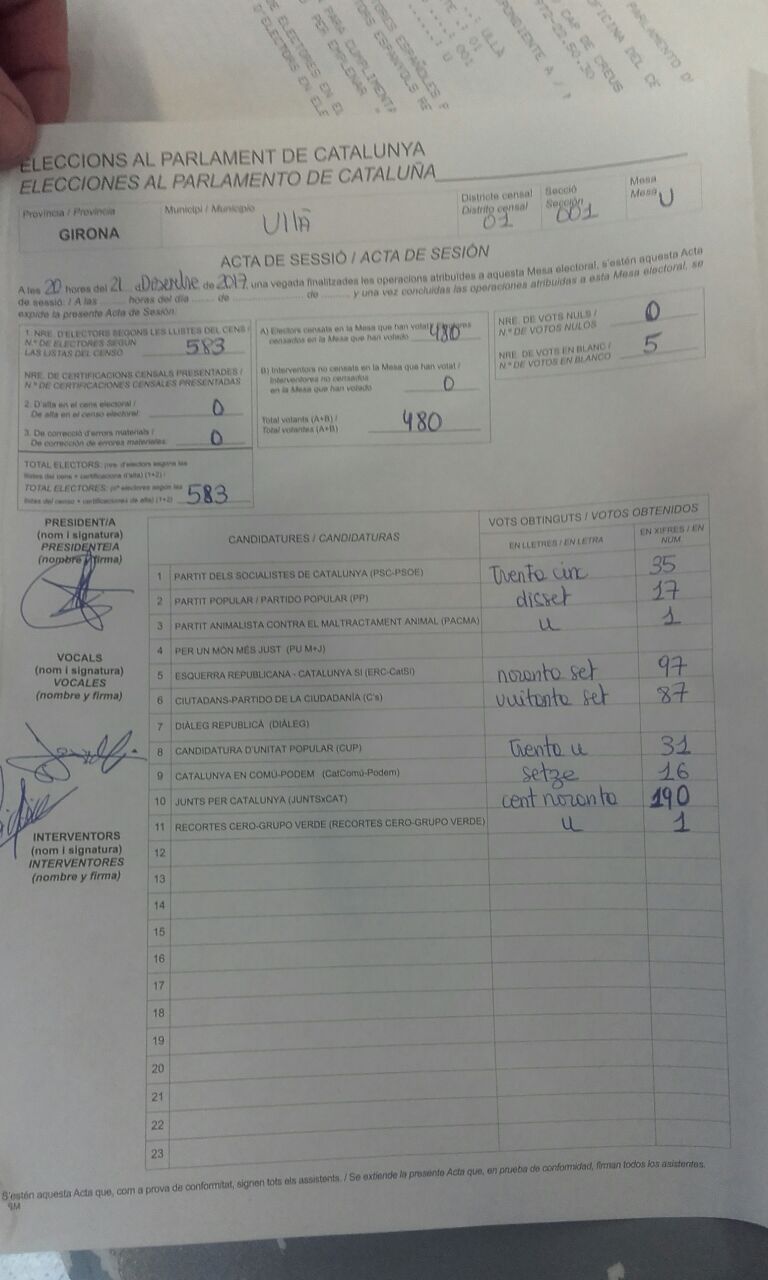 PARLAMENTO D'
OFICINA DEL CE
CAP DE CREUS
972-20.50.30
PONDIENTE A / 
ULLÀ
01
001
U
ELECTORES EN EL
PER EMPLENAR
D'ELECTORS EN ELE
ELECCIONS AL PARLAMENT DE CATALUNYA
ELECCIONES AL PARLAMENTO DE CATALUÑA
Província / Provincia
GIRONA
Municipi / Municipio
Ullà
Districte censal
Distrito censal
01
Secció
Sección
001
Mesa
Mesa
U
ACTA DE SESSIÓ / ACTA DE SESIÓN
A les 20 hores del 21 d Desembre de 2017, una vegada finalitzades les operacions atribuïdes a aquesta Mesa electoral, s'estén aquesta Acta
de sessió: / A las ........ horas del día ....... de .................... de ......... y una vez concluidas las operaciones atribuidas a esta Mesa electoral, se
expide la presente Acta de Sesión:
1. NRE. D'ELECTORS SEGONS LES LLISTES DEL CENS /
N.º DE ELECTORES SEGÚN
LAS LISTAS DEL CENSO 583
NRE. DE CERTIFICACIONS CENSALS PRESENTADES /
N.º DE CERTIFICACIONES CENSALES PRESENTADAS
2. D'alta en el cens electoral /
De alta en el censo electoral: 0
3. De correcció d'errors materials /
De corrección de errores materiales: 0
TOTAL ELECTORS: (nre. d'electors segons les
llistes del cens + certificacions d'alta) (1+2) /
TOTAL ELECTORES: (nº electores según las
listas del censo + certificaciones de alta) (1+2) 583
A) Electors censats en la Mesa que han votat / Electores
censados en la Mesa que han votado 480
B) Interventors no censats en la Mesa que han votat /
Interventores no censados
en la Mesa que han votado 0
Total votants (A+B) /
Total votantes (A+B) 480
NRE. DE VOTS NULS /
N.º DE VOTOS NULOS 0
NRE. DE VOTS EN BLANC /
N.º DE VOTOS EN BLANCO 5
PRESIDENT/A
(nom i signatura)
PRESIDENTE/A
(nombre y firma)
VOCALS
(nom i signatura)
VOCALES
(nombre y firma)
INTERVENTORS
(nom i signatura)
INTERVENTORES
(nombre y firma)
CANDIDATURES / CANDIDATURAS
VOTS OBTINGUTS / VOTOS OBTENIDOS
EN LLETRES / EN LETRA
EN XIFRES / EN NÚM.
1 PARTIT DELS SOCIALISTES DE CATALUNYA (PSC-PSOE) Trenta cinc 35
2 PARTIT POPULAR / PARTIDO POPULAR (PP) disset 17
3 PARTIT ANIMALISTA CONTRA EL MALTRACTAMENT ANIMAL (PACMA) u 1
4 PER UN MÓN MÉS JUST (PU M+J)
5 ESQUERRA REPUBLICANA - CATALUNYA SÍ (ERC-CatSí) noranta set 97
6 CIUTADANS-PARTIDO DE LA CIUDADANÍA (C's) vuitanta set 87
7 DIÀLEG REPUBLICÀ (DIÀLEG)
8 CANDIDATURA D'UNITAT POPULAR (CUP) Trenta u 31
9 CATALUNYA EN COMÚ-PODEM (CatComú-Podem) setze 16
10 JUNTS PER CATALUNYA (JUNTSxCAT) cent noranta 190
11 RECORTES CERO-GRUPO VERDE (RECORTES CERO-GRUPO VERDE) u 1
12
13
14
15
16
17
18
19
20
21
22
23
S'estén aquesta Acta que, com a prova de conformitat, signen tots els assistents. / Se extiende la presente Acta que, en prueba de conformidad, firman todos los asistentes.